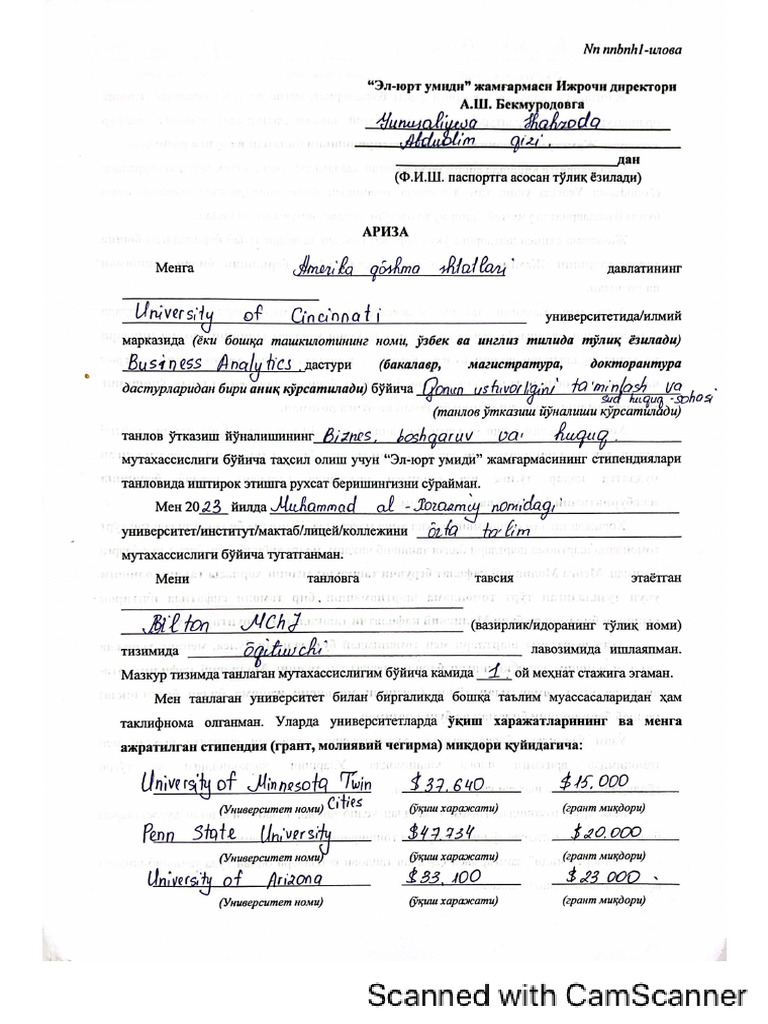 Nn nnbnh1-илова
“Эл-юрт умиди” жамғармаси Ижрочи директори
А.Ш. Бекмуродовга
Yunusaliyeva Shahzoda
Abdublim qizi.
дан
(Ф.И.Ш. паспортга асосан тўлиқ ёзилади)
АРИЗА
Менга Amerika qóshma shtatlari давлатининг
University of Cincinnati университетида/илмий
марказида (ёки бошқа ташкилотининг номи, ўзбек ва инглиз тилида тўлиқ ёзилади)
Business Analytics дастури (бакалавр, магистратура, докторантура
дастурларидан бири аниқ кўрсатилади) бўйича Qonun ustuvorligini ta'minlash va
sud huquq-sohasi
(танлов ўтказиш йўналиши кўрсатилади)
танлов ўтказиш йўналишининг Biznes, boshqaruv va huquq.
мутахассислиги бўйича таҳсил олиш учун “Эл-юрт умиди” жамғармасининг стипендиялари
танловида иштирок этишга рухсат беришингизни сўрайман.
Мен 2023 йилда Muhammad al-Xorazmiy nomidagi
университет/институт/мактаб/лицей/коллежини órta ta'lim
мутахассислиги бўйича тугатганман.
Мени танловга тавсия этаётган
Bilton MChJ (вазирлик/идоранинг тўлиқ номи)
тизимида óqituvchi лавозимида ишлаяпман.
Мазкур тизимда танлаган мутахассислигим бўйича камида 1 ой меҳнат стажига эгаман.
Мен танлаган университет билан биргаликда бошқа таълим муассасаларидан ҳам
таклифнома олганман. Уларда университетларда ўқиш харажатларининг ва менга
ажратилган стипендия (грант, молиявий чегирма) миқдори қуйидагича:
University of Minnesota Twin $37.640 $15.000
Cities
(Университет номи) (ўқиш харажати) (грант миқдори)
Penn State University $47.734 $20.000
(Университет номи) (ўқиш харажати) (грант миқдори)
University of Arizona $33,100 $23 000.
(Университет номи) (ўқиш харажати) (грант миқдори)
Scanned with CamScanner